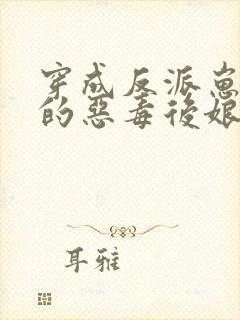 穿成反派崽崽
的惡毒後娘
耳雅